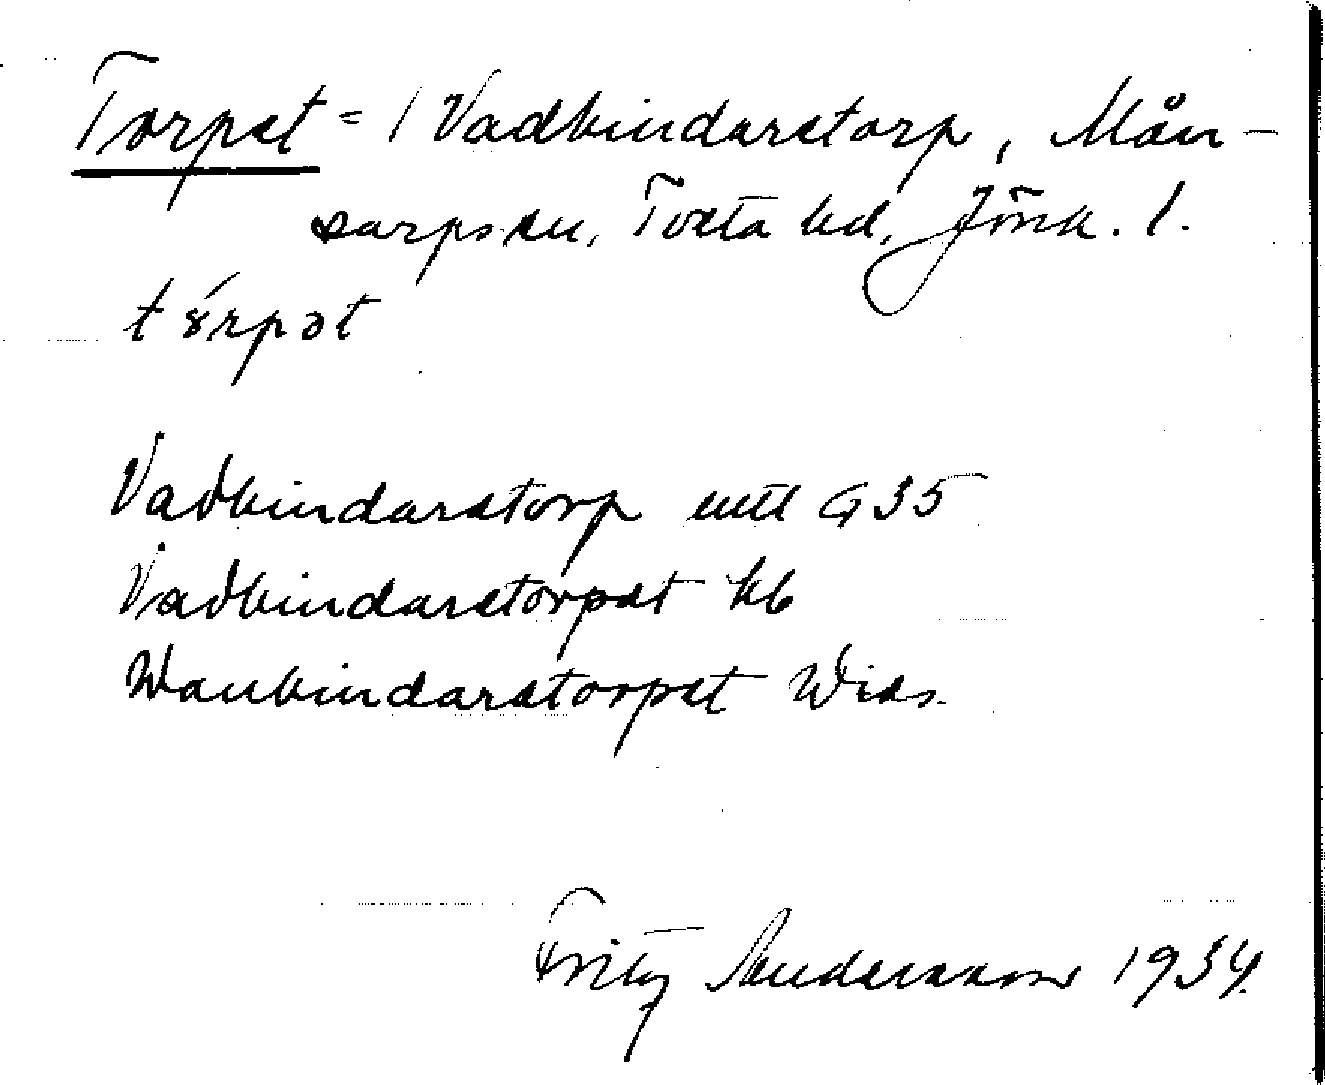 Torpet = / Vadbindaretorp, Mån-
sarps sn, Tveta hd, Jönk. l.
Vadbindaretorp mtl G35
Vadbindaretorpet hb
Wanbindaretorpet
Fritz Andersson 1934.